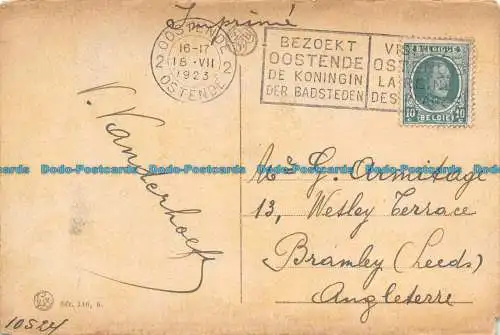 Imprimé
OOSTENDE
16-17
18 · VII
1923
2 2
OSTENDE
BEZOEKT
OOSTENDE
DE KONINGIN
DER BADSTEDEN
VI
OST
LA
DES
BELGIQUE
10 10
BELGIË
V. Vanderhoeft
Mr G. Armitage
13, Wesley Terrace
Bramley (Leeds)
Angleterre
Dodo-Postcards Dodo-Postcards Dodo-Postcards Dodo-Postcards
Sér. 116, 6.
10524